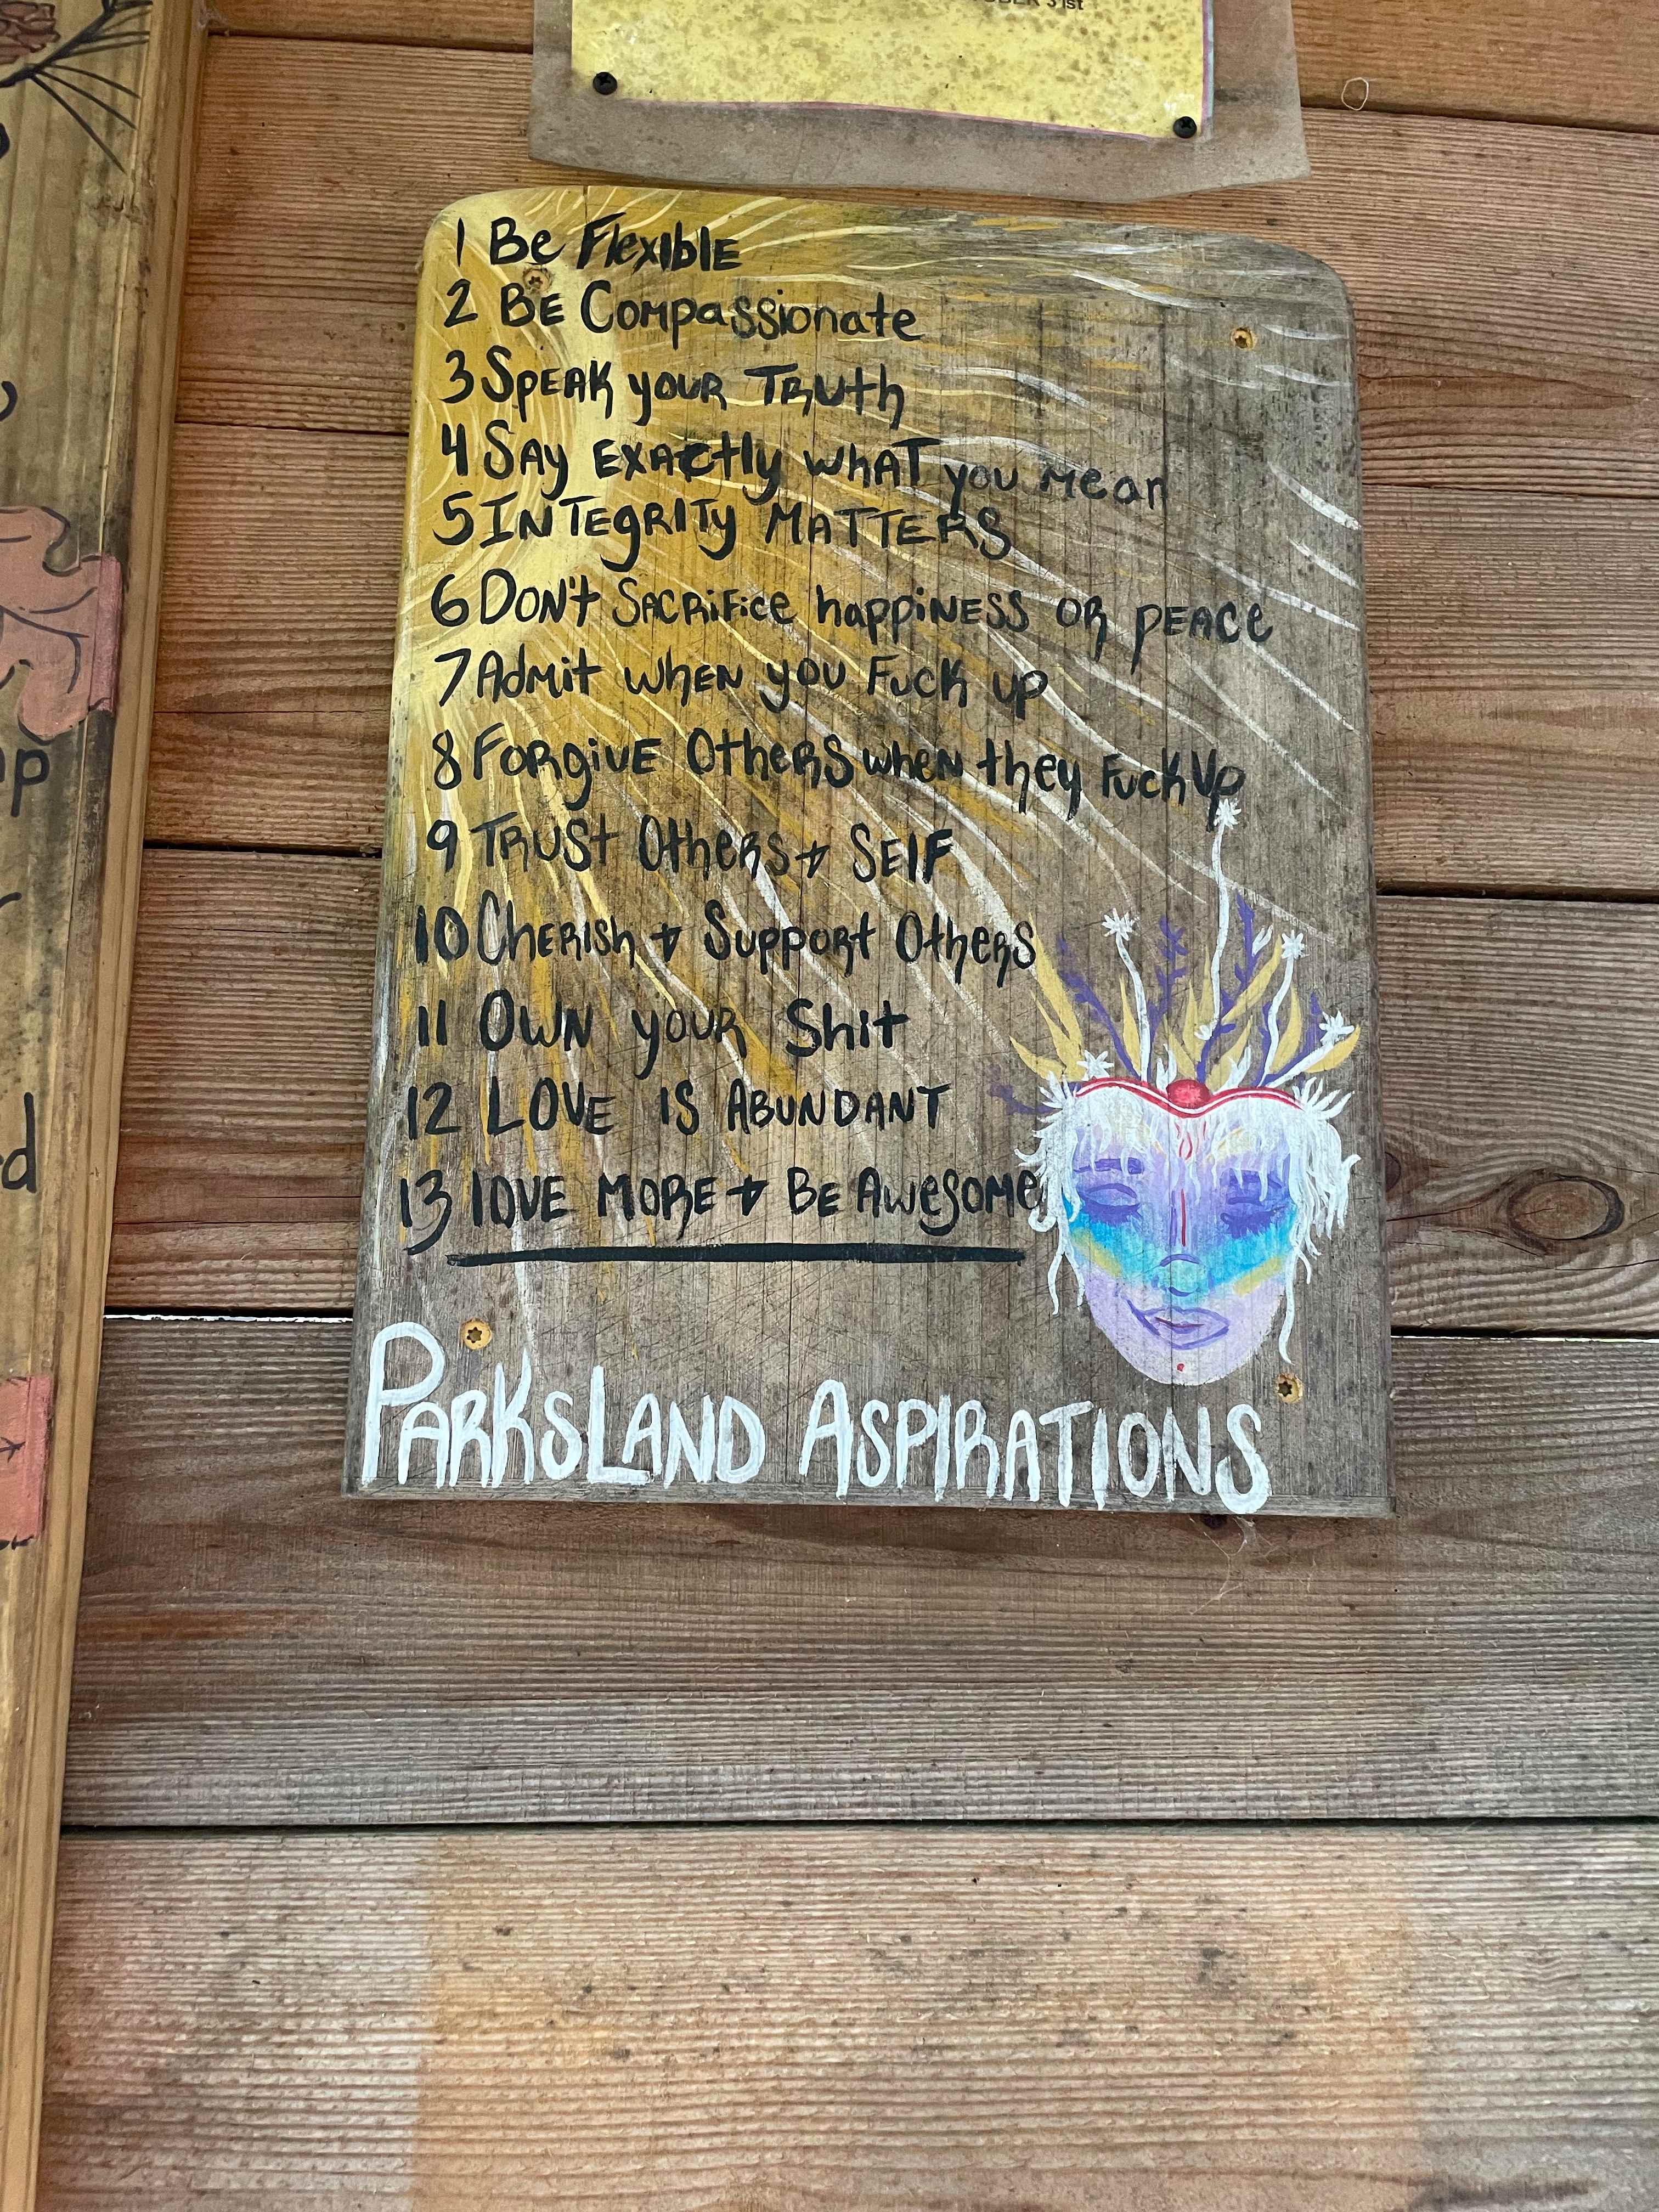 OBER 31st
1 Be Flexible
2 BE Compassionate
3 SPEAK YOUR TRUth
4 SAY EXActly whAT you mean
5 INTEgRITy MATTERS
6 DON't SACRiFice happiNESS OR PEACE
7 Admit whEN you Fuck up
8 FORgiVE OthERS whEN they Fuck Up
9 TRUSt OtheRS + SElF
10 ChERISh + SuppoRt OtheRS
11 OWN YOUR Shit
12 LOVE IS ABUNDANT
13 lOVE MORE + BE AwESOME
PARKSLAND ASPIRATIONS